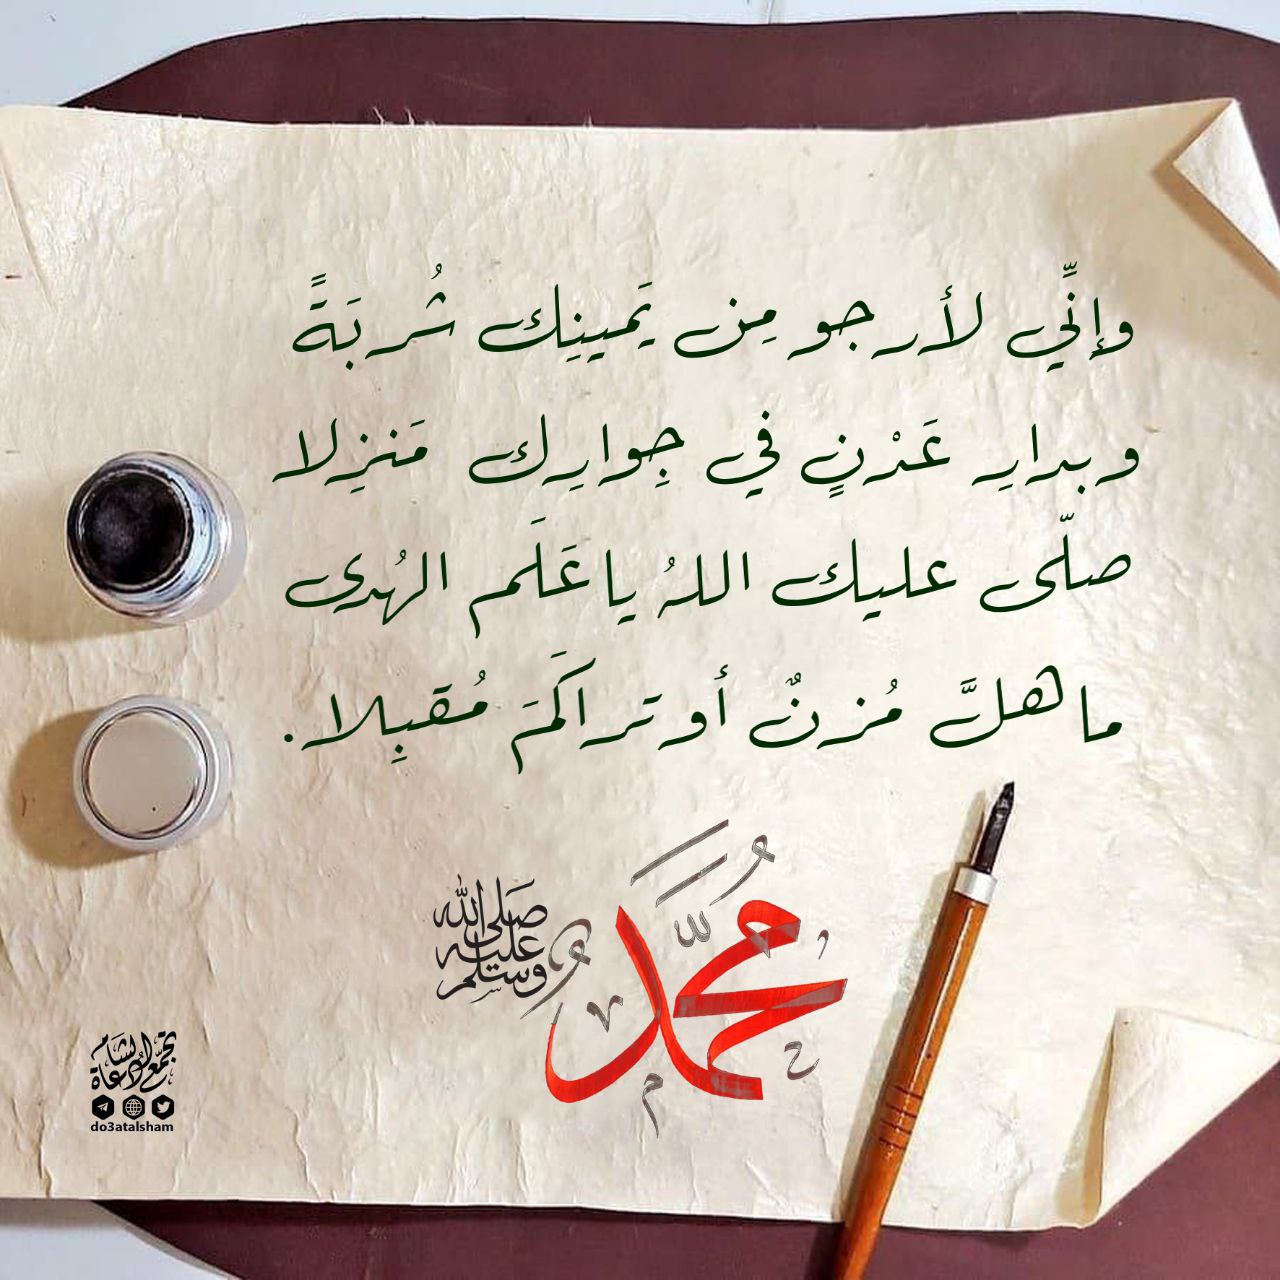 وإنِّي لأرجو مِن يَمينِك شُربَةً
وبدارِ عَدْنٍ في جِوارِك مَنزِلا
صلّى عليك اللهُ يا عَلَم الهُدى
ما هلَّ مُزنٌ أو تراكَمَ مُقبِلا.
محمد
صلى الله عليه وسلم
تجمع دعاة الشام
do3atalsham